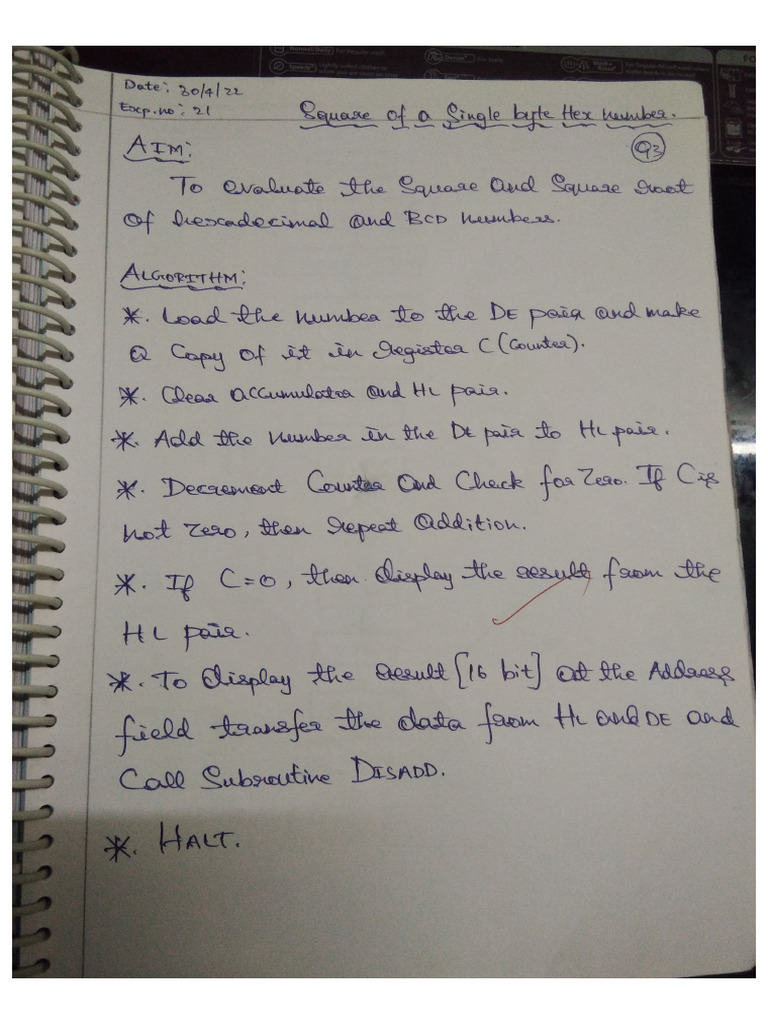 Date: 30/4/22
Exp.no: 21
Square of a Single byte Hex number.
93
AIM:
To evaluate the Square and Square root
of hexadecimal and BCD numbers.
ALGORITHM:
*. Load the number to the DE pair and make
a Copy of it in register C (Counter).
*. Clear accumulator and HL pair.
*. Add the number in the DE pair to HL pair.
*. Decrement Counter and Check for Zero. If C is
not Zero, then repeat addition.
*. If C=0, then display the result from the
HL pair.
*. To display the result [16 bit] at the Address
field transfer the data from HL and DE and
Call Subroutine DISADD.
*. HALT.